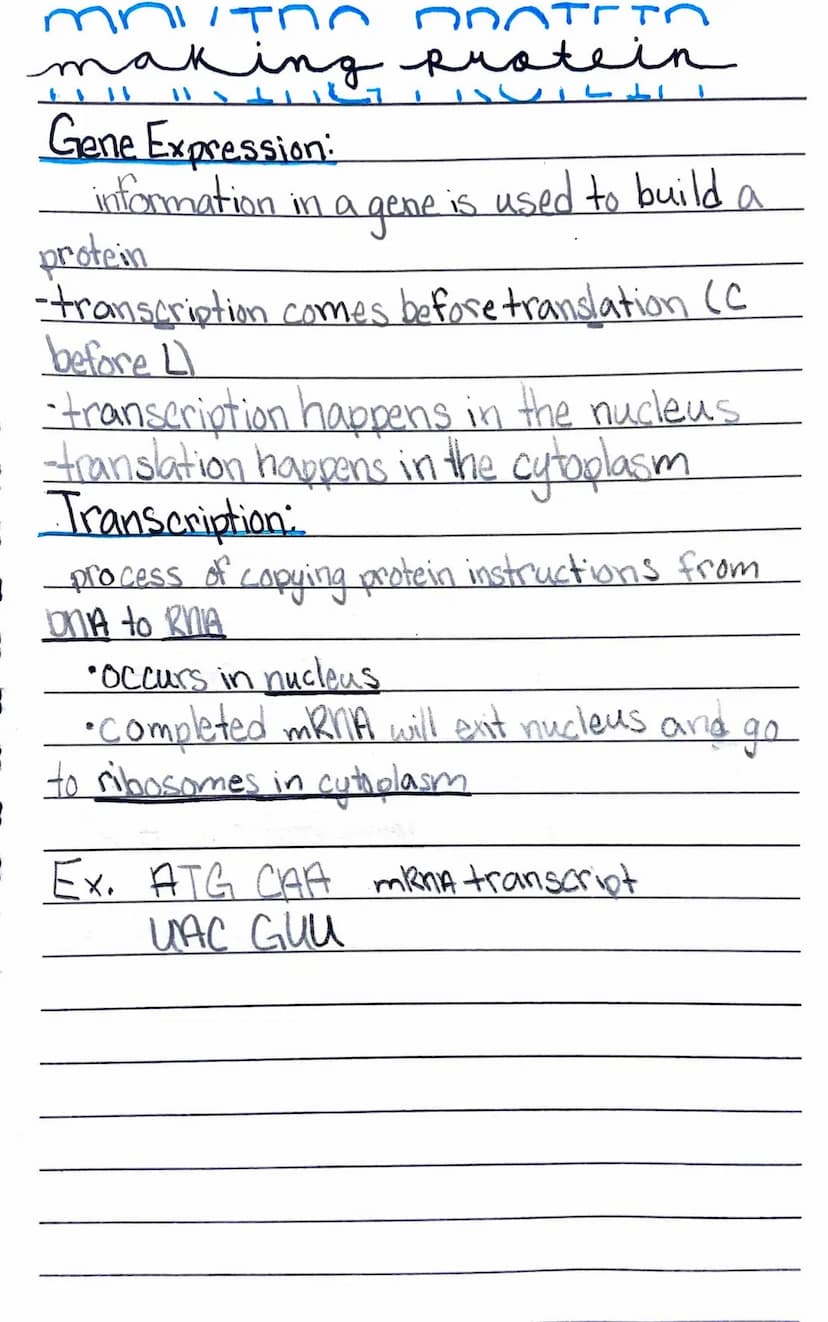 making protein
Gene Expression:
information in a gene is used to build a
protein
-transcription comes before translation (C
before L)
-transcription happens in the nucleus
-translation happens in the cytoplasm
Transcription:
process of copying protein instructions from
DNA to RNA
•occurs in nucleus
•completed mRNA will exit nucleus and go
to ribosomes in cytoplasm
Ex. ATG CAA mRNA transcript
UAC GUU